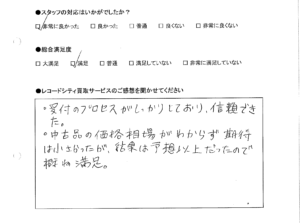 ●スタッフの対応はいかがでしたか？
☑非常に良かった □良かった □普通 □良くない □非常に良くない
●総合満足度
□大満足 ☑満足 □普通 □満足していない □非常に満足していない
●レコードシティ買取サービスのご感想を聞かせてください
・受付のプロセスがしっかりしており、信頼でき
た。
・中古品の価格相場がわからず期待
は小さかったが、結果は予想以上だったので
概ね満足。